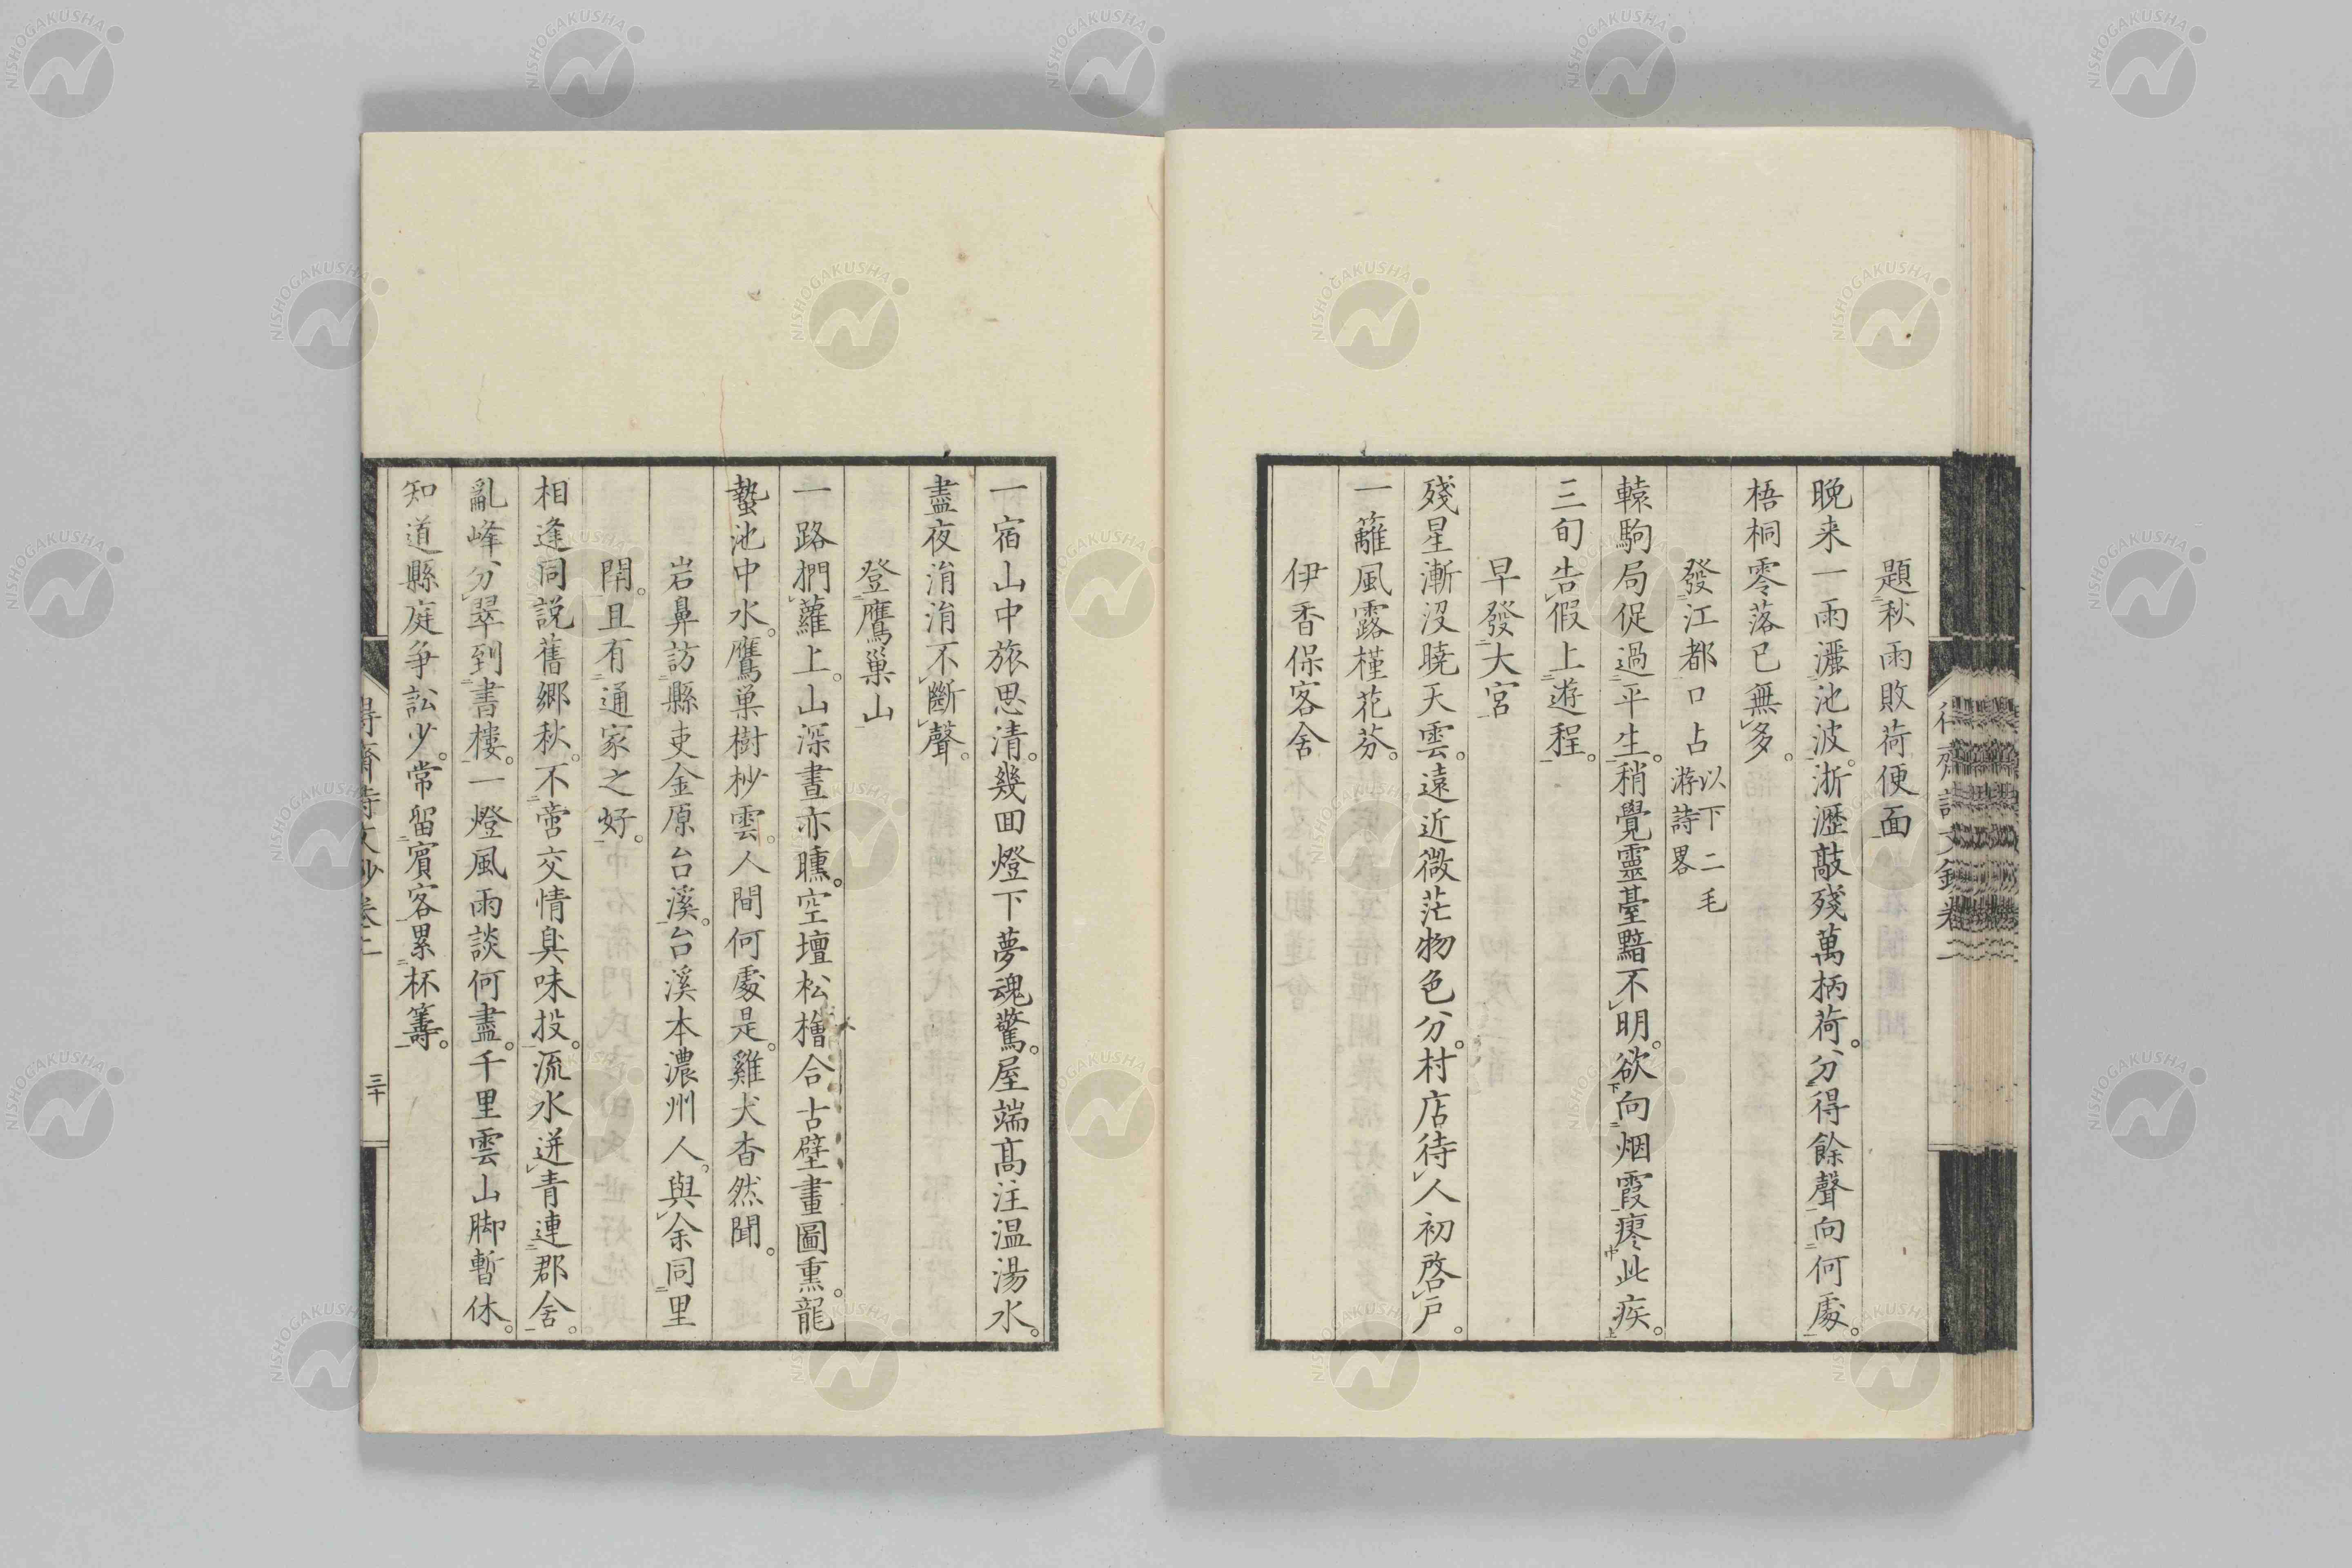 題秋雨敗荷便面
晩来一雨灑池波。淅瀝敲殘萬柄荷。分得餘聲向何處。
梧桐零落已無多。
發江都口占 以下二毛游詩畧
轅駒局促過平生。稍覺靈臺黯不明。欲向烟霞瘳此疾。
三旬告假上遊程。
早發大宮
殘星漸沒曉天雲。遠近微茫物色分。村店待人初啓戶。
一籬風露槿花芬。
伊香保客舍
一宿山中旅思清。幾回燈下夢魂驚。屋端高注温湯水。
盡夜涓涓不斷聲。
登鷹巢山
一路捫蘿上。山深晝亦曛。空壇松檜合古壁畫圖熏。龍
蟄池中水。鷹巢樹杪雲。人間何處是。雞犬杳然聞。
岩鼻訪縣吏金原台溪。台溪本濃州人。與余同里
閈。且有通家之好。
相逢同說舊鄉秋。不啻交情臭味投。流水迸青連郡舍。
亂峰分翠到書樓。一燈風雨談何盡。千里雲山脚暫休。
知道縣庭爭訟少。常留賓客累杯籌。
三十
NISHOGAKUSHA